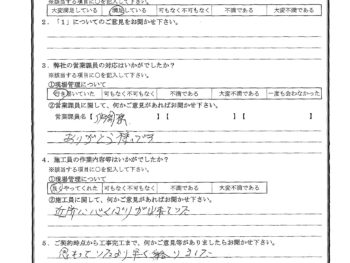 ※該当する項目に○を記入して下さい。
大変満足している 満足している 可もなく不可もなく 不満である 大変不満である
2．「１」についてのご意見をお聞かせ下さい。
3．弊社の営業職員の対応はいかがでしたか?
※該当する項目に○を記入して下さい。
①現場管理について
行き届いていた 可もなく不可もなく 不満である 大変不満である 一度も会わなかった
②営業職員に関して、何かご意見があればお聞かせ下さい。
営業職員名【 】【 】【 】
ありがとう様です
4．施工員の作業内容等はいかがでしたか?
※該当する項目に○を記入して下さい。
①現場管理について
良くやってくれた 可もなく不可もなく 不満である 大変不満である
②施工員に関して、何かご意見があればお聞かせ下さい。
近所に心くばりが出来ている
5．ご契約時点から工事完工まで、何かご意見等がありましたらお聞かせ下さい。
思っていたより早く終りました